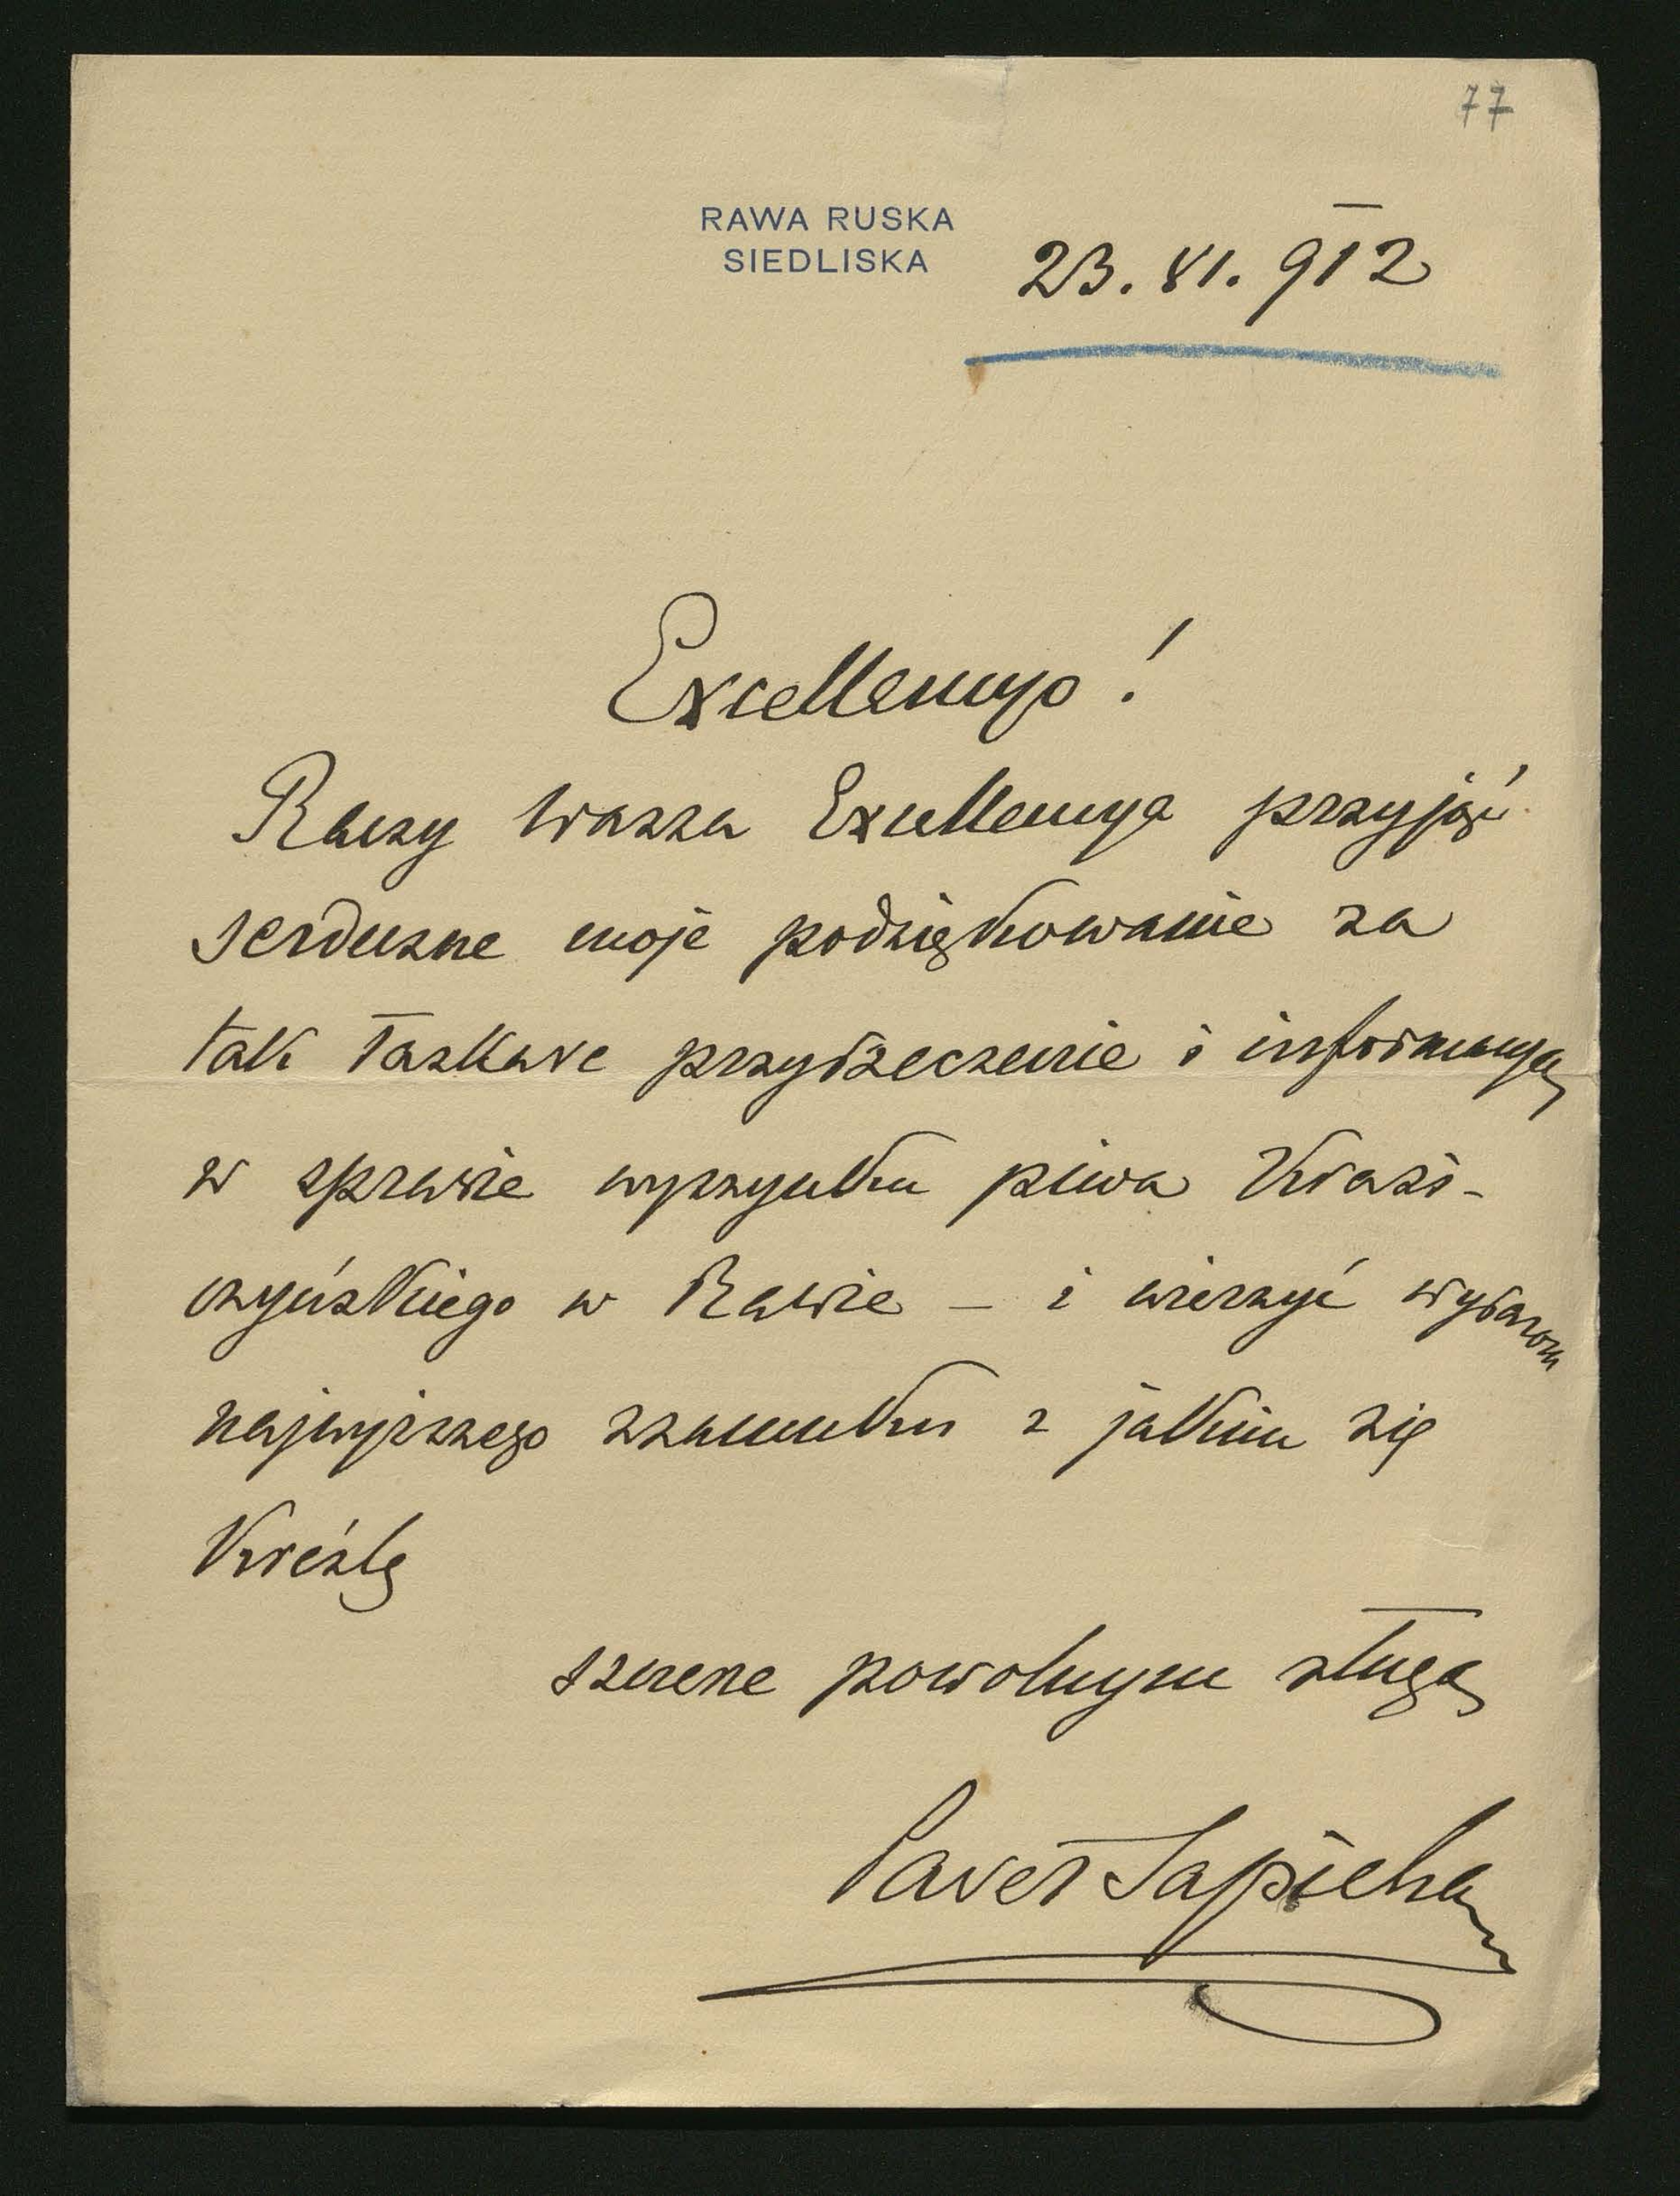 77
RAWA RUSKA
SIEDLISKA
23. XI. 912
Excellencyo!
Raczy Wasza Excellencya przyjąć
serdeczne moje podziękowanie za
tak łaskawe przyrzeczenie i informacyą
w sprawie wyszynku piwa Krasi-
czyńskiego w Rawie – i wierzyć wyrazom
najwyższego szacunku z jakim się
kreślę
szczerze powolnym sługą
Paweł Sapieha